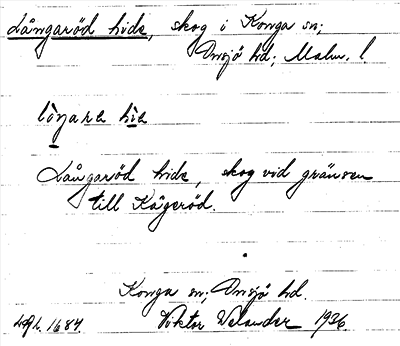 Långaröd hide, skog i Konga sn;
Onsjö hd; Malm. l.
lòŋarə hìə
Långaröd hide, skog vid gränsen
till Kågeröd.
Konga sn; Onsjö hd.
1684. Viktor Welander 1936